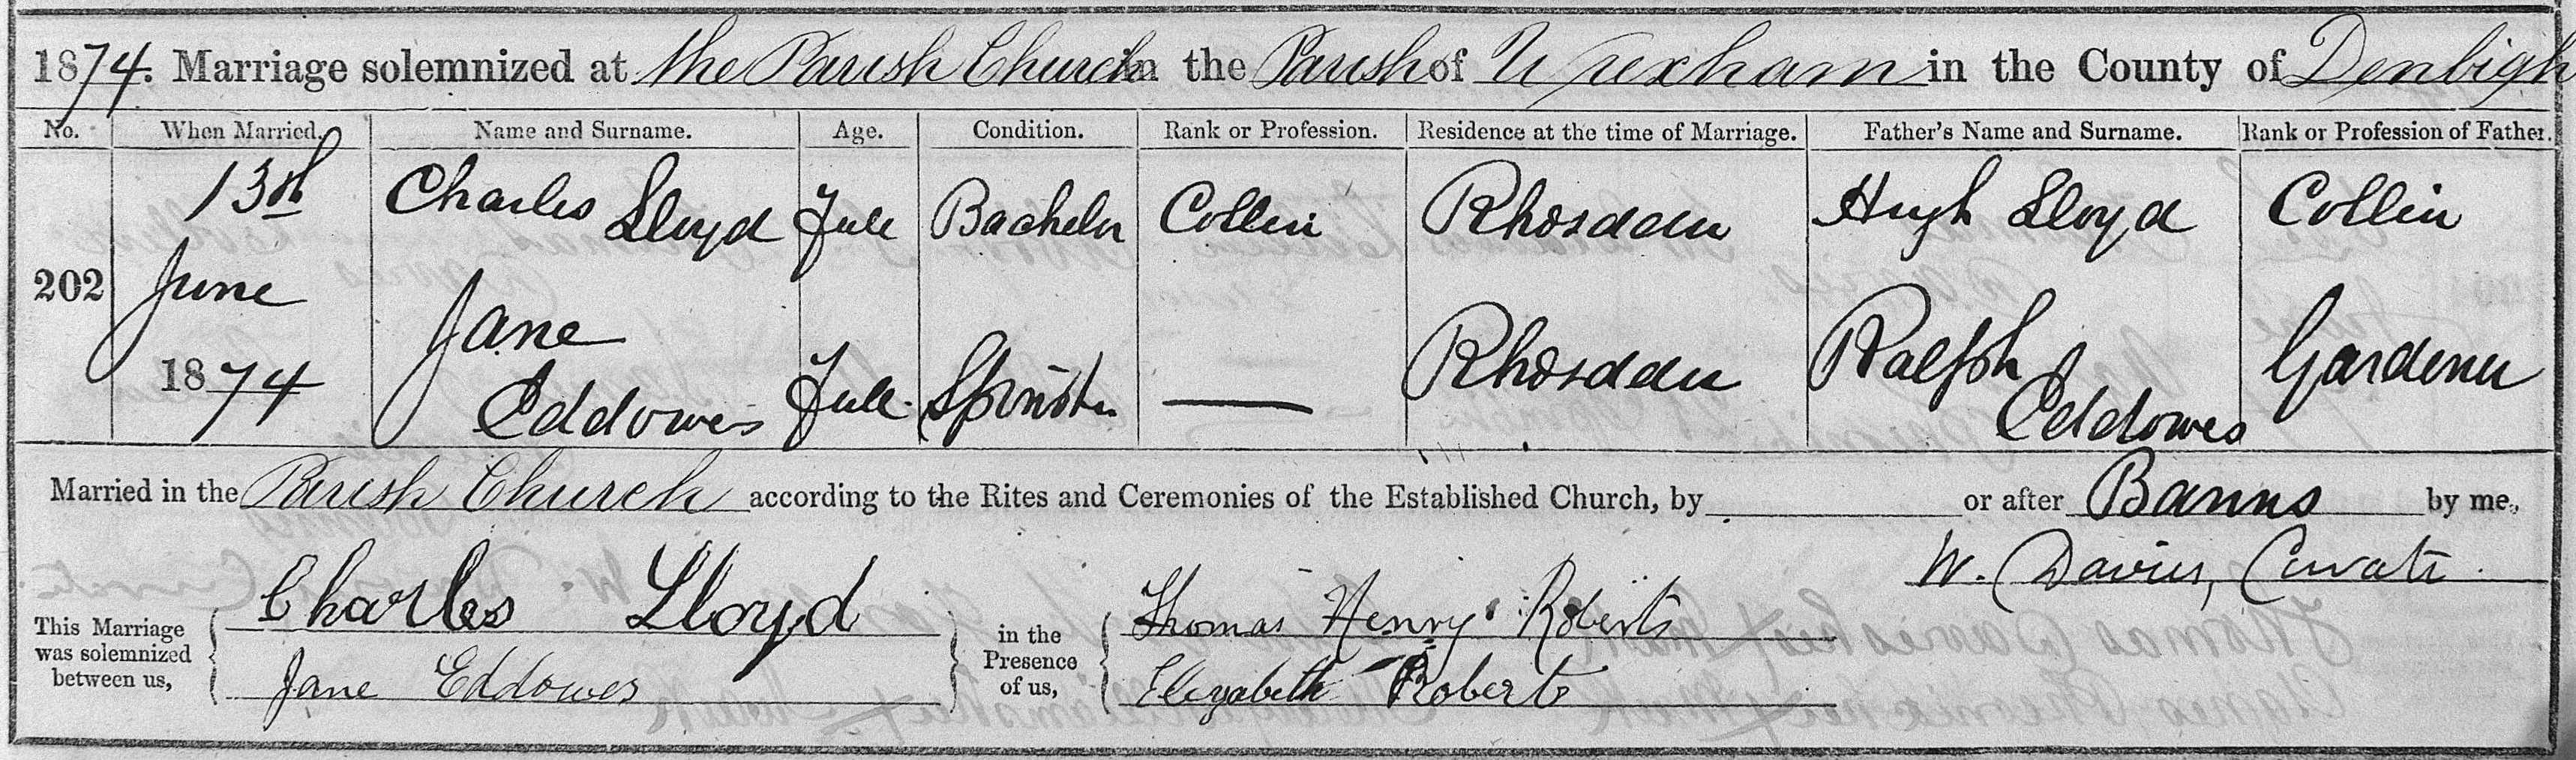 1874. Marriage solemnized at the Parish Church in the Parish of Wrexham in the County of Denbigh
No. When Married. Name and Surname. Age. Condition. Rank or Profession. Residence at the time of Marriage. Father's Name and Surname. Rank or Profession of Father.
202 13th June 1874 Charles Lloyd Full Bachelor Collier Rhosddu Hugh Lloyd Collier
Jane Eddowes Full Spinster — Rhosddu Ralph Eddowes Gardener
Married in the Parish Church according to the Rites and Ceremonies of the Established Church, by or after Banns by me,
W. Davies, Curate
This Marriage was solemnized between us, Charles Lloyd Jane Eddowes in the Presence of us, Thomas Henry Roberts Elizabeth Roberts